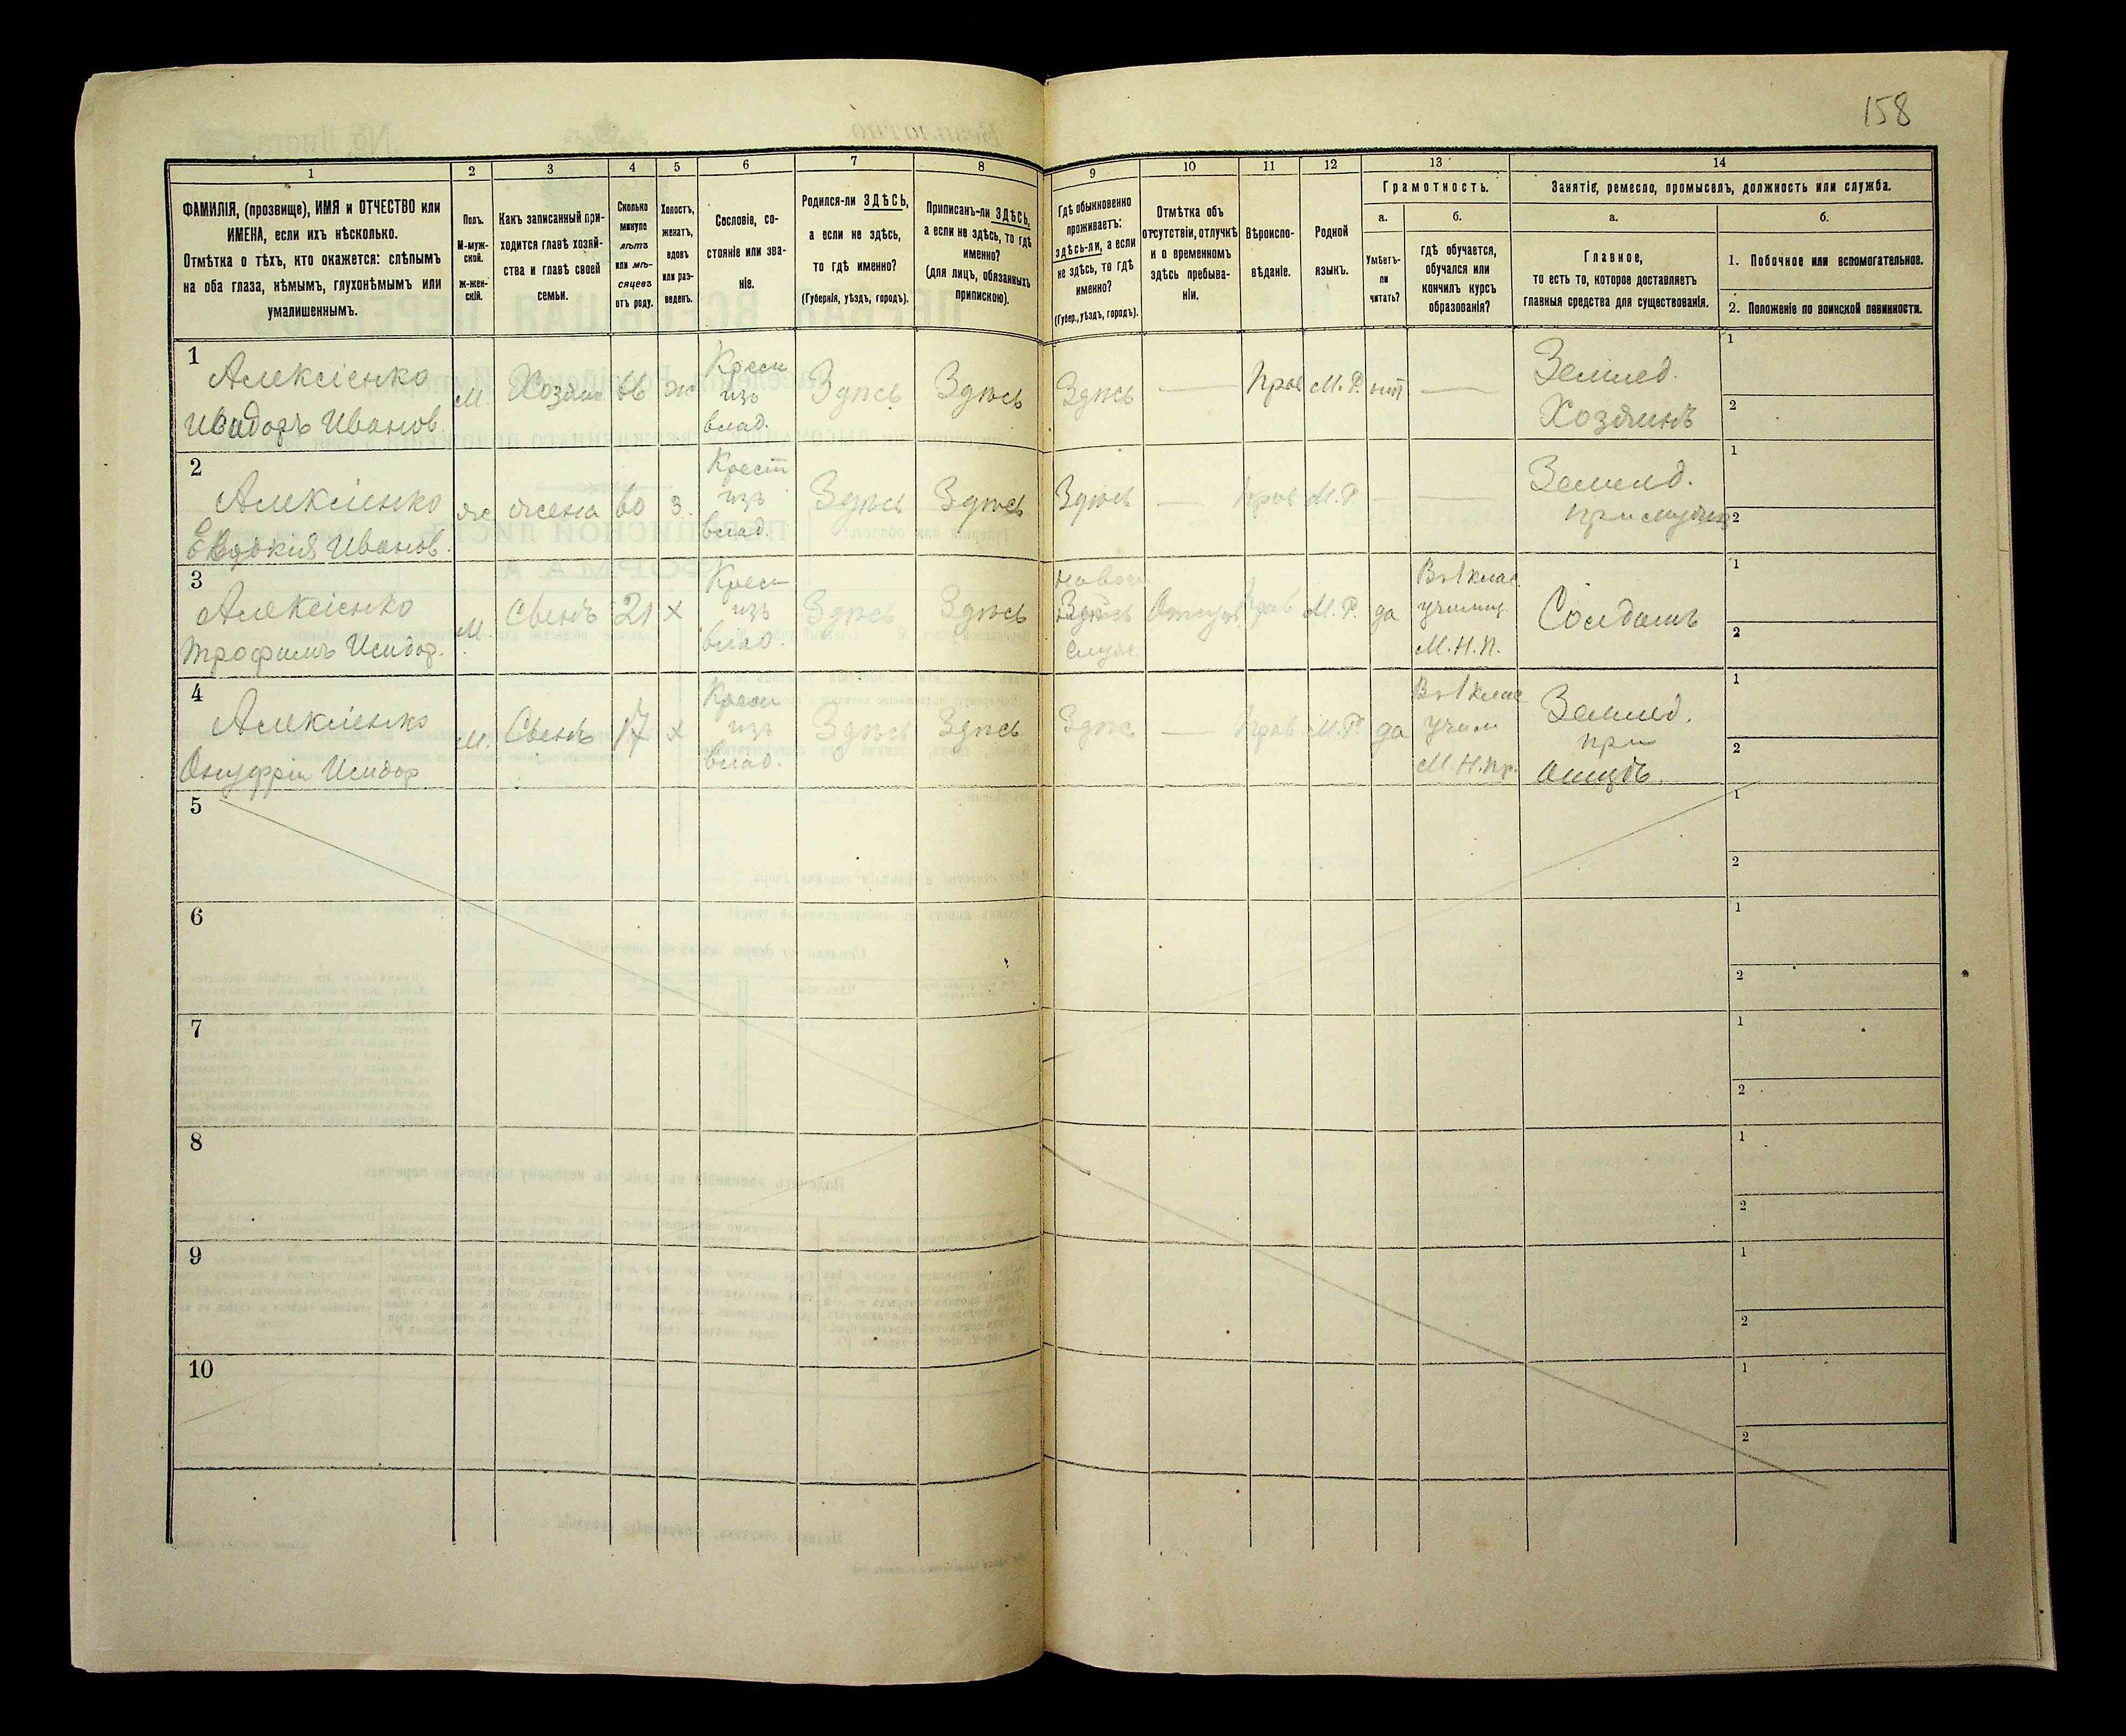 158
1
2
3
4
5
6
7
8
9
10
11
12
13
14
ФАМИЛІЯ, (прозвище), ИМЯ и ОТЧЕСТВО или
ИМЕНА, если ихъ нѣсколько.
Отмѣтка о тѣхъ, кто окажется: слѣпымъ
на оба глаза, нѣмымъ, глухонѣмымъ или
умалишеннымъ.
Полъ.
М-муж-
ской.
ж-жен-
скій.
Какъ записанный при-
ходится главѣ хозяй-
ства и главѣ своей
семьи.
Сколько
минуло
лѣтъ
или мѣ-
сяцевъ
отъ роду.
Холостъ,
женатъ,
вдовъ
или раз-
веденъ.
Сословіе, со-
стояніе или зва-
ніе.
Родился-ли ЗДѢСЬ,
а если не здѣсь,
то гдѣ именно?
(Губернія, уѣздъ, городъ).
Приписанъ-ли ЗДѢСЬ,
а если не здѣсь, то гдѣ
именно?
(для лицъ, обязанныхъ
припискою).
Гдѣ обыкновенно
проживаетъ:
здѣсь-ли, а если
не здѣсь, то гдѣ
именно?
(Губер., уѣздъ, городъ).
Отмѣтка объ
отсутствіи, отлучкѣ
и о временномъ
здѣсь пребыва-
ніи.
Вѣроиспо-
вѣданіе.
Родной
языкъ.
Грамотность.
а.
Умѣетъ-
ли
читать?
б.
гдѣ обучается,
обучался или
кончилъ курсъ
образованія?
Занятіе, ремесло, промыселъ, должность или служба.
а.
Главное,
то есть то, которое доставляетъ
главныя средства для существованія.
б.
1. Побочное или вспомогательное.
2. Положеніе по воинской повинности.
1
Алексіенко
Иванов.
М.
Хозяин
ж
Крест
изъ
влад.
Здѣсь
Здѣсь
Здѣсь
—
прав
М. Р.
нѣт
—
Землед.
Хозяинъ
1
2
2
Алексіенко
Евдокія Иванов.
ж
жена
60
з.
Крест
изъ
влад.
Здѣсь
Здѣсь
Здѣсь
—
прав
М. Р
—
—
Землед.
1
2
3
Алексіенко
Трофимъ Исидор.
М.
Сынъ
21
х
Крест
изъ
влад.
Здѣсь
Здѣсь
прав
М. Р.
да
Въ 1 клас
училищ.
М. Н. П.
Солдатъ
1
2
4
Алексіенко
Онуфрій Исидор
М.
Сынъ
17
х
Крест
изъ
влад.
Здѣсь
Здѣсь
Здѣс
—
прав
М. Р
да
Въ 1 клас
учил
М. Н. пр.
Землед.
при
отцѣ.
1
2
5
1
2
6
1
2
7
1
2
8
1
2
9
1
2
10
1
2